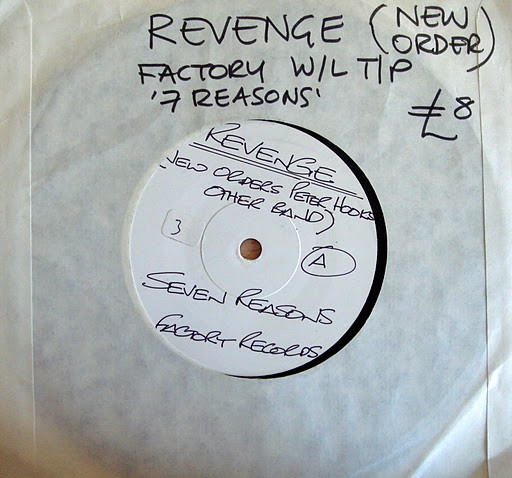 REVENGE (NEW ORDER)
FACTORY W/L T/P
'7 REASONS'
£8
REVENGE
(NEW ORDERS PETER HOOKS
OTHER BAND)
3
A
SEVEN REASONS
FACTORY RECORDS